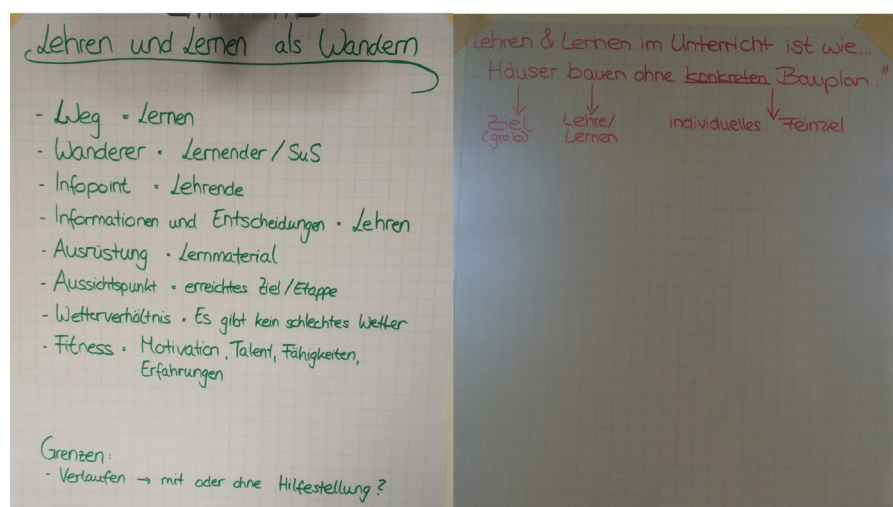 Lehren und Lernen als Wandern
- Weg = Lernen
- Wanderer = Lernender / SuS
- Infopoint = Lehrende
- Informationen und Entscheidungen = Lehren
- Ausrüstung = Lernmaterial
- Aussichtspunkt = erreichtes Ziel / Etappe
- Wetterverhältnis = Es gibt kein schlechtes Wetter
- Fitness = Motivation, Talent, Fähigkeiten,
Erfahrungen
Grenzen:
- Verlaufen → mit oder ohne Hilfestellung?
Lehren & Lernen im Unterricht ist wie...
... Häuser bauen ohne konkreten Bauplan."
Ziel Lehre/ individuelles Feinziel
(grob) Lernen